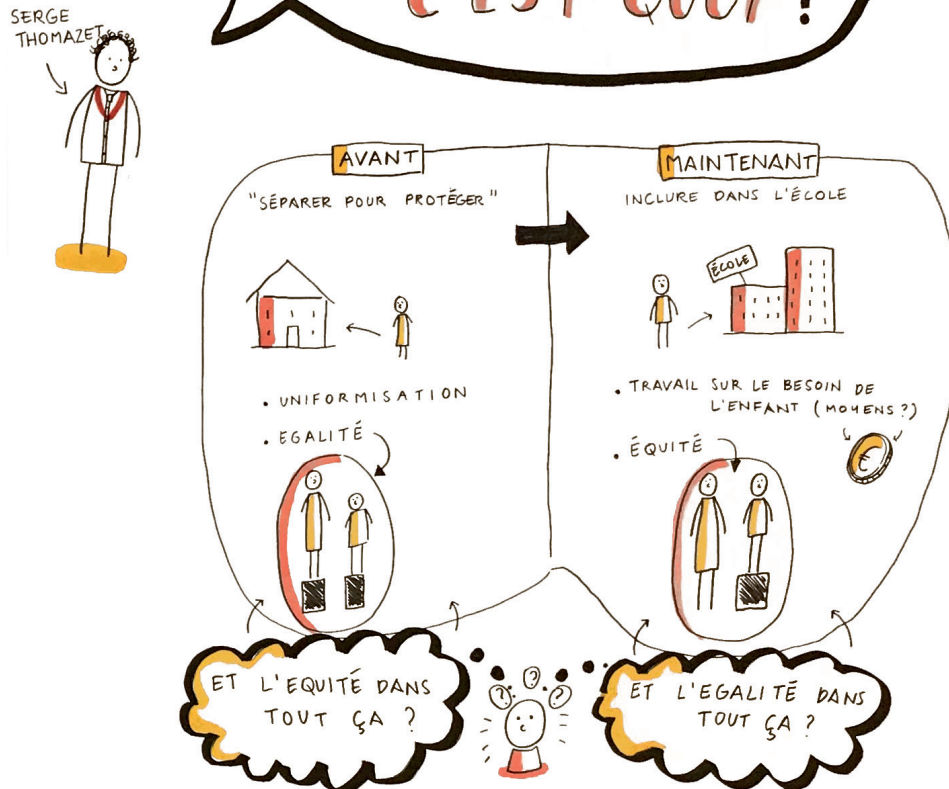 SERGE
THOMAZET
C'EST QUOI ?
AVANT
"SÉPARER POUR PROTÉGER"
• UNIFORMISATION
• EGALITÉ
MAINTENANT
INCLURE DANS L'ÉCOLE
ÉCOLE
• TRAVAIL SUR LE BESOIN DE
L'ENFANT (MOYENS ?)
€
• ÉQUITÉ
ET L'EQUITÉ DANS
TOUT ÇA ?
? ? ?
ET L'EGALITÉ DANS
TOUT ÇA ?